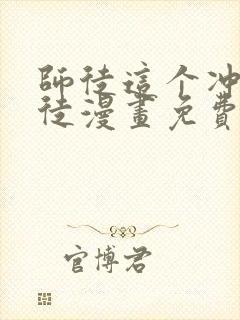 師徒這个冲
徒漫畫免費
官博君